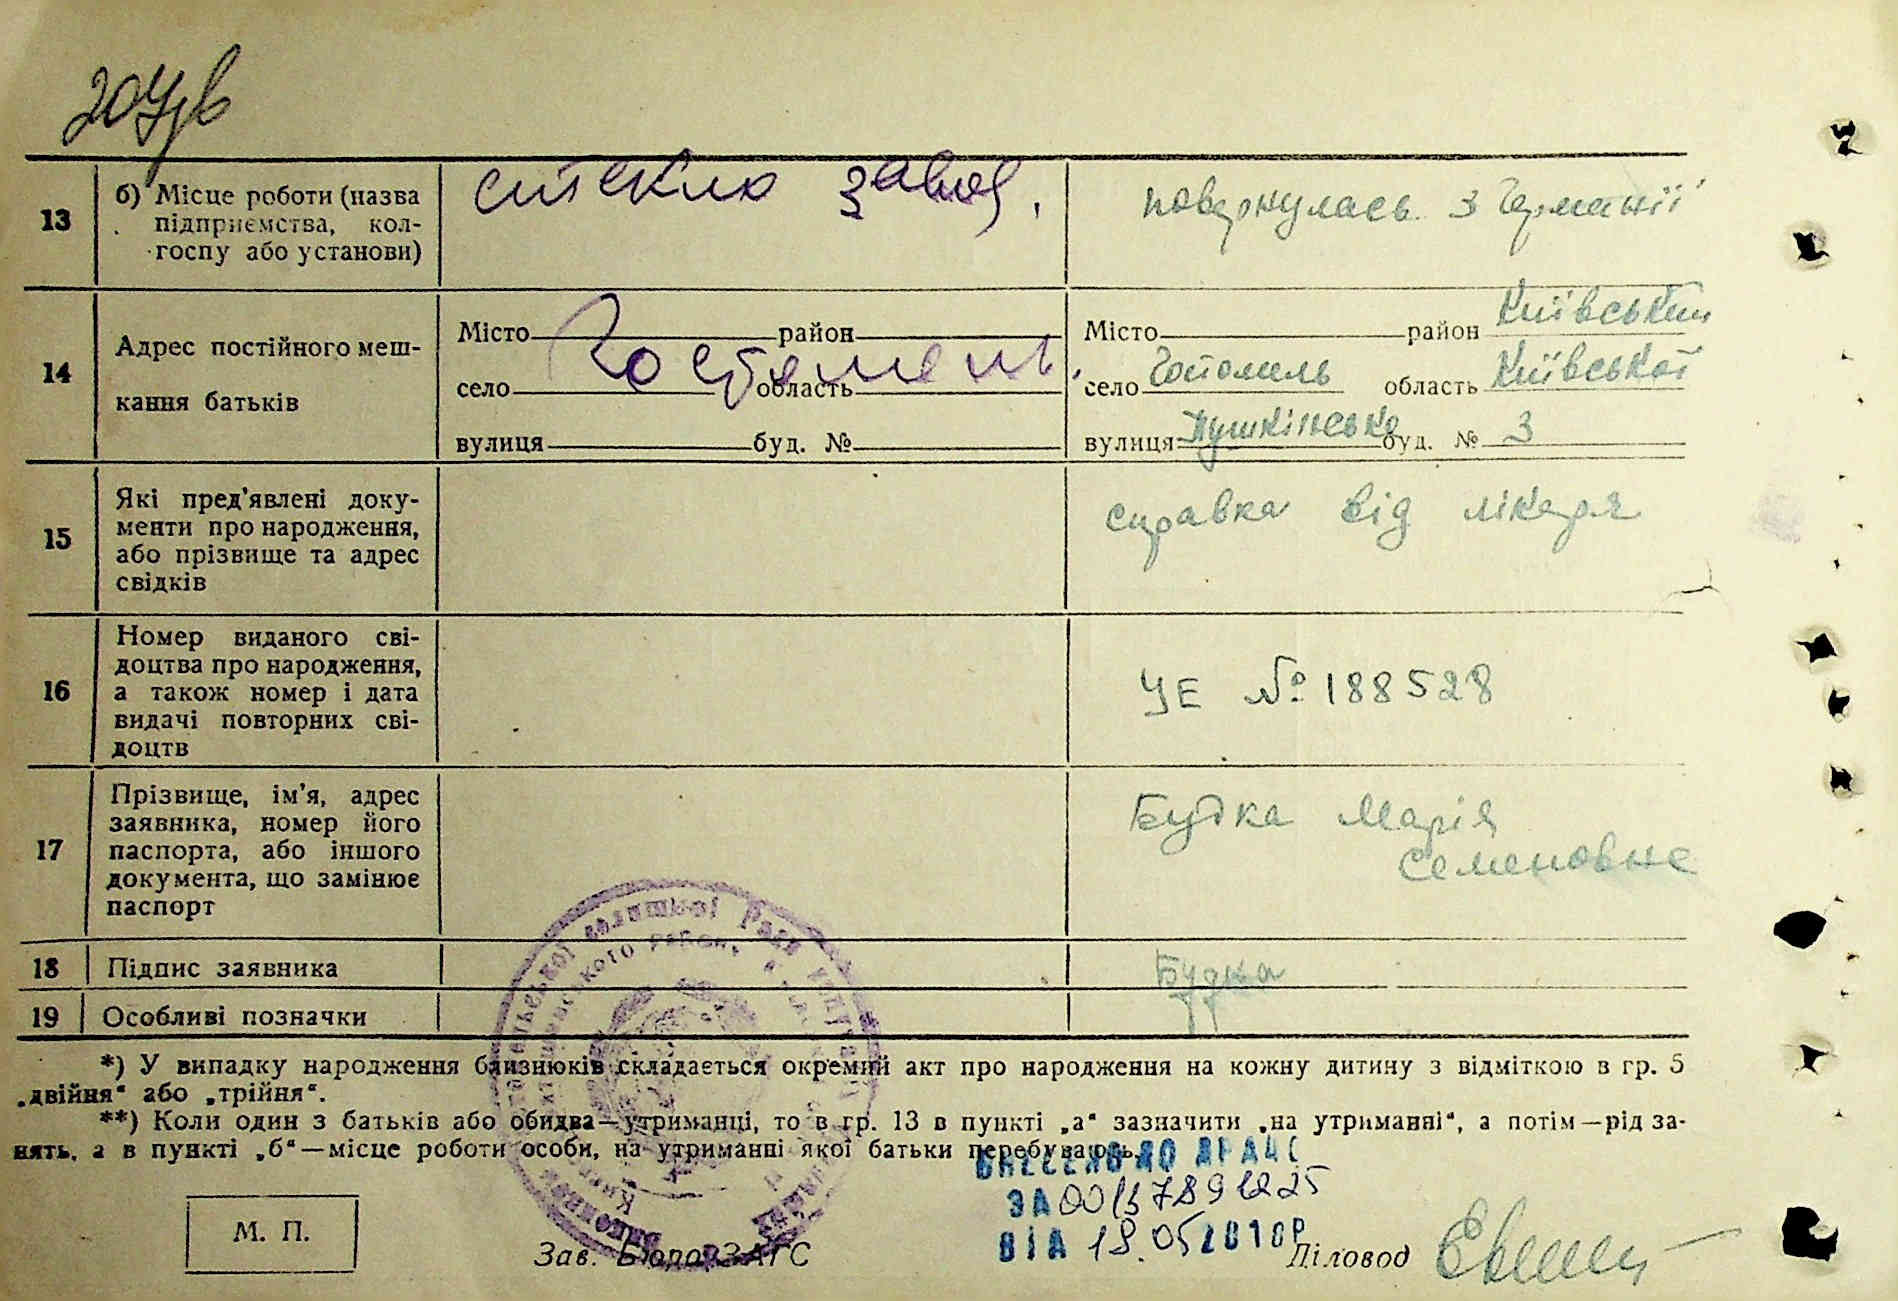 13
б) Місце роботи (назва
підприємства, кол-
госпу або установи)
стекло завод.
повернулась з Германії
14
Адрес постійного меш-
кання батьків
Місто район
Гостомель
село область
вулиця буд. №
Місто район Київський
село Гостомель область Київської
вулиця Пушкінсько буд. № 3
15
Які пред'явлені доку-
менти про народження,
або прізвище та адрес
свідків
справка від лікаря
16
Номер виданого сві-
доцтва про народження,
а також номер і дата
видачі повторних сві-
доцтв
УЕ № 188528
17
Прізвище, ім'я, адрес
заявника, номер його
паспорта, або іншого
документа, що замінює
паспорт
Будка Марія
Семеновне
18
Підпис заявника
Будка
19
Особливі позначки
*) У випадку народження близнюків складається окремий акт про народження на кожну дитину з відміткою в гр. 5
„двійня“ або „трійня“.
**) Коли один з батьків або обидва—утриманці, то в гр. 13 в пункті „а“ зазначити „на утриманні“, а потім—рід за-
нять, а в пункті „б“—місце роботи особи, на утриманні якої батьки перебувають.
ВНЕСЕНО ДО ДРАЦС
ЗА
ВІД 18.05 2010Р
М. П.
Зав. Бюро ЗАГС
Діловод